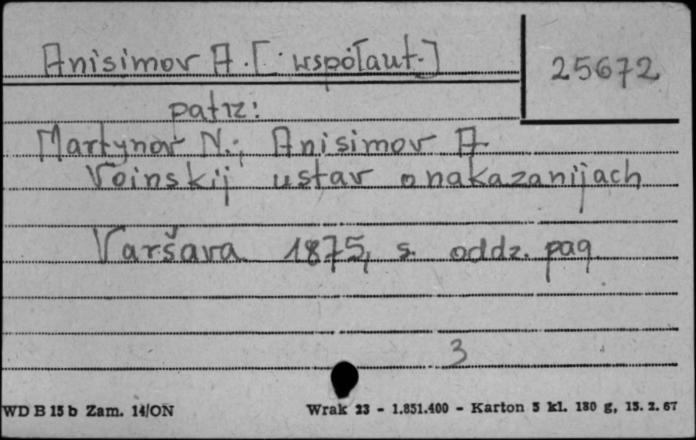 Anisimov A. [współaut.]
25672
patrz:
Martynov N., Anisimov A
Voinskij ustav o nakazanijach
Varšava 1875, s. oddz. pag
3
WD B 15 b Zam. 14/ON Wrak 23 - 1.851.400 - Karton 5 kl. 180 g, 15. 2. 67